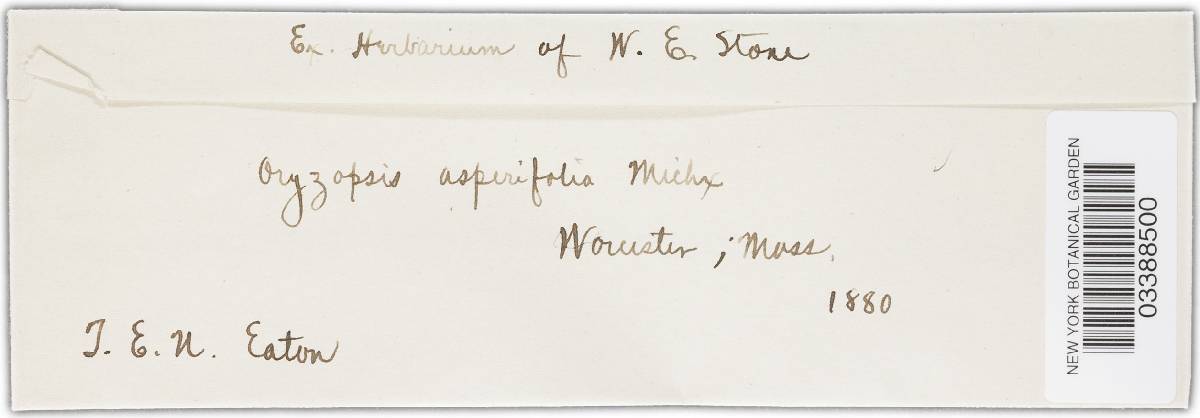 Ex. Herbarium of W. E. Stone
Oryzopsis asperifolia Michx
Worcester, Mass.
1880
T. E. N. Eaton
NEW YORK BOTANICAL GARDEN
03388500